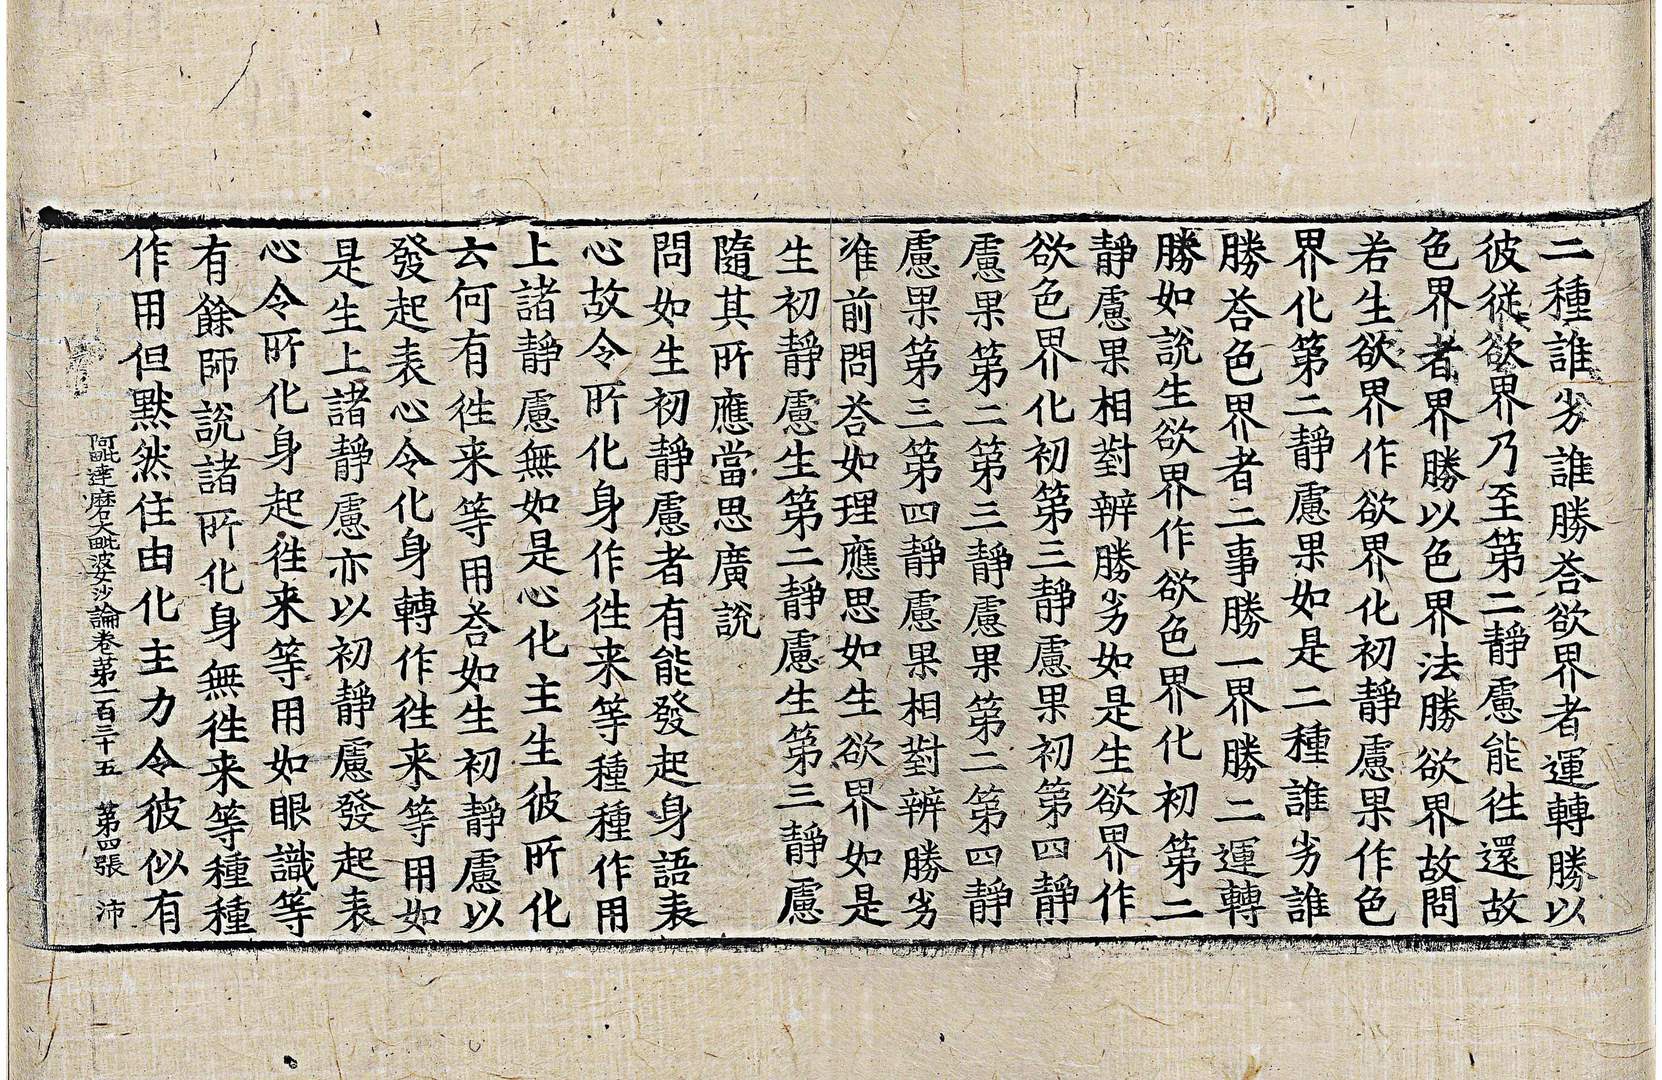 二種誰劣誰勝荅欲界者運轉勝以
彼從欲界乃至第二靜慮能往還故
色界者界勝以色界法勝欲界故問
若生欲界作欲界化初靜慮果作色
界化第二靜慮果如是二種誰劣誰
勝荅色界者二事勝一界勝二運轉
勝如說生欲界作欲色界化初第二
靜慮果相對辨勝劣如是生欲界作
欲色界化初第三靜慮果初第四靜
慮果第二第三靜慮果第二第四靜
慮果第三第四靜慮果相對辨勝劣
准前問荅如理應思如生欲界如是
生初靜慮生第二靜慮生第三靜慮
隨其所應當思廣說
問如生初靜慮者有能發起身語表
心故令所化身作往来等種種作用
上諸靜慮無如是心化主生彼所化
云何有往来等用荅如生初靜慮以
發起表心令化身轉作往来等用如
是生上諸靜慮亦以初靜慮發起表
心令所化身起往来等用如眼識等
有餘師說諸所化身無往来等種種
作用但默然住由化主力令彼似有
阿毗達磨大毗婆沙論卷第一百三十五　第四張　沛